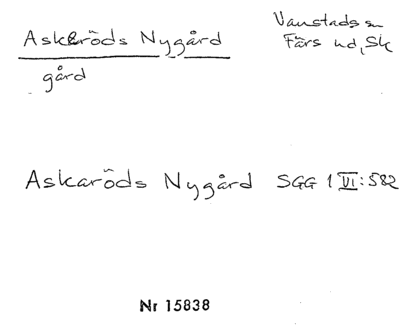 Askeröds Nygård
gård
Vanstads sn
Färs hd, Sk
Askaröds Nygård SGG 1 VI:582
Nr 15838